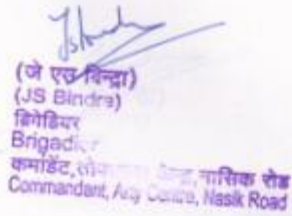 (जे एस बिन्द्रा)
(JS Bindra)
ब्रिगेडियर
Brigadier
कमांडेंट, नासिक रोड
Commandant, Arty Centre, Nasik Road